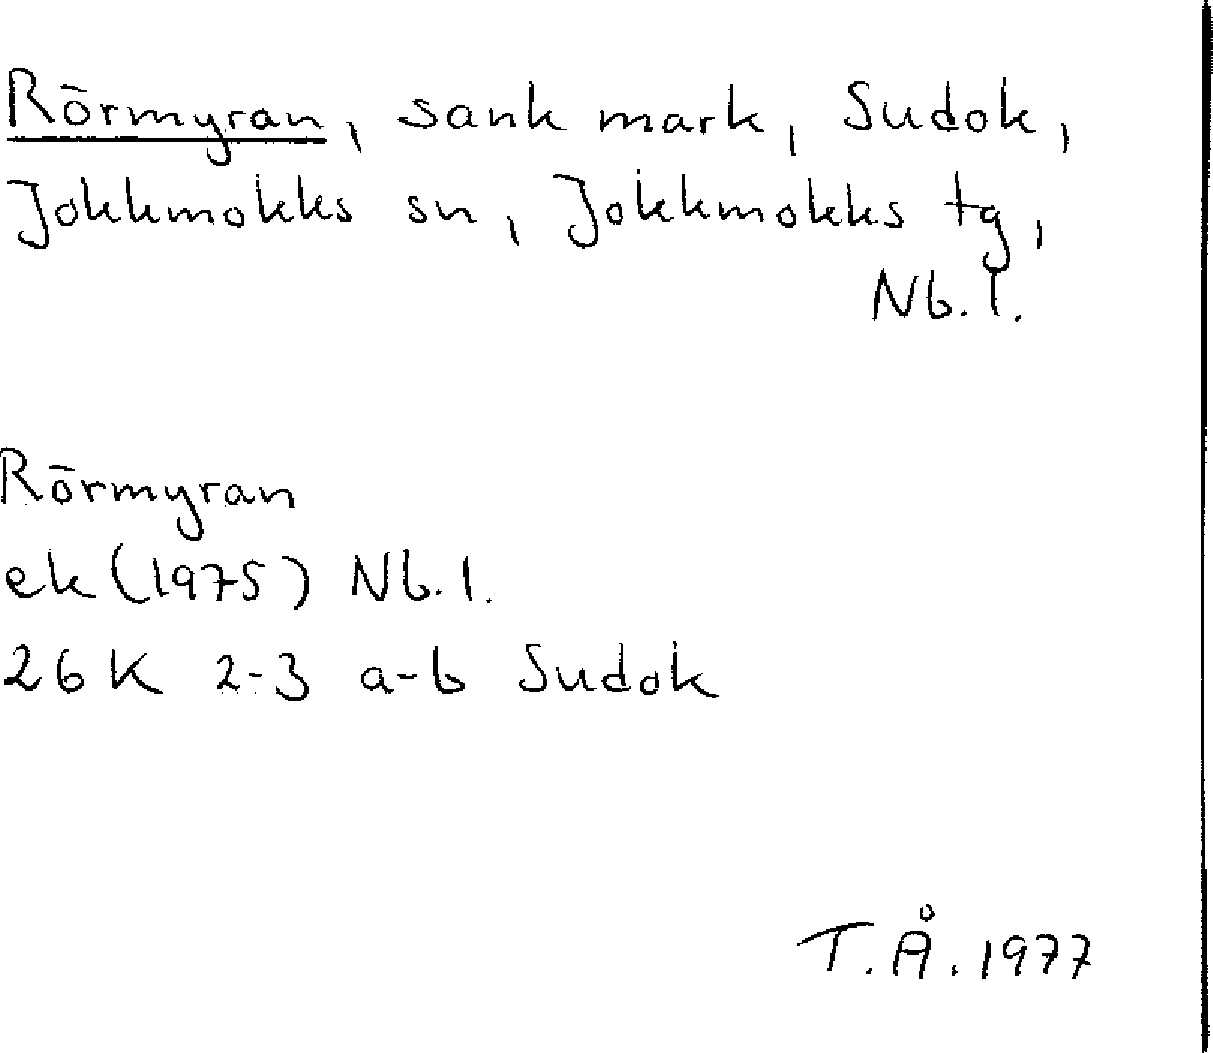 Rörmyran, sank mark, Sudok,
Jokkmokks sn, Jokkmokks tg,
Nb. l.
Rörmyran
ek (1975) Nb. l.
26 K 2-3 a-b Sudok
T. Å. 1977